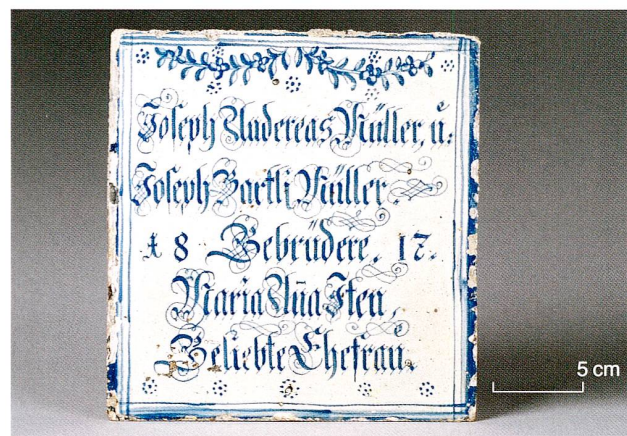 Joseph Andereas Müller, ŭ:
Joseph Bartli Müller.
18 Gebrüdere. 17.
Maria Aña Iten,
Geliebte Ehefrau.
5 cm